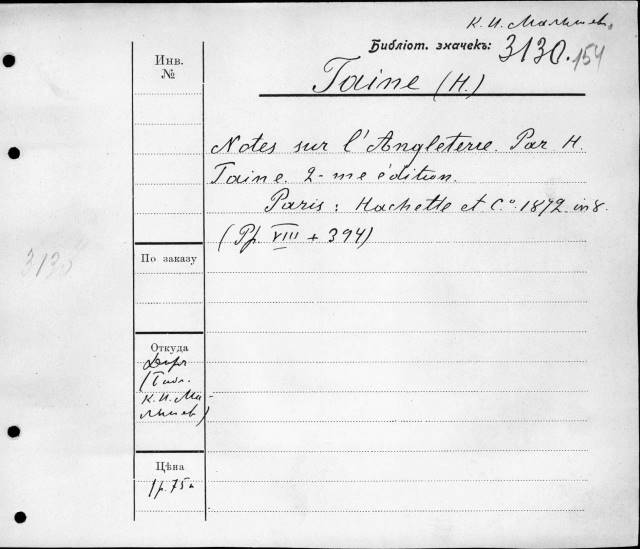 К. И. Малышев.
Библіот. значекъ: 3130. 154
Taine (H.)
Инв.
№
Notes sur l'Angleterre. Par H.
Taine. 2-me édition.
Paris: Hachette et Cº. 1872. in 8.
(Pp. VIII + 394)
3130
По заказу
Откуда
К. И. Ма-
лышев)
Цѣна
1 р. 75 к